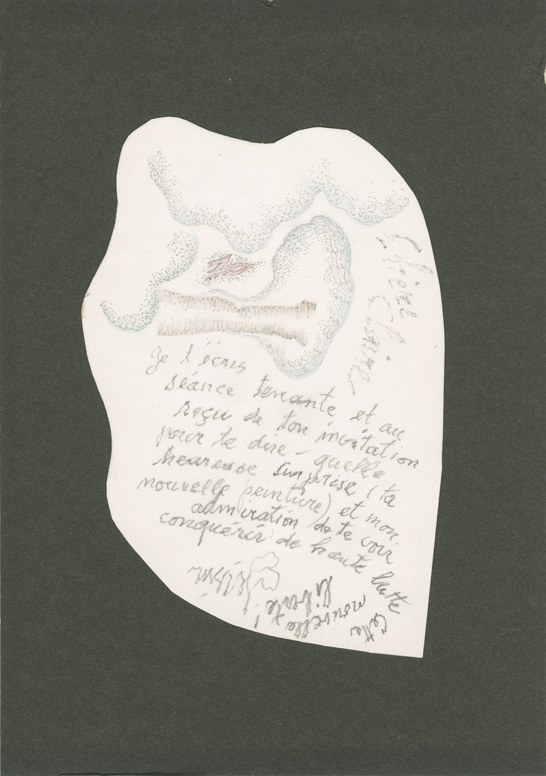 Je t'écris
séance tenante et au
reçu de ton invitation
pour te dire - quelle
heureuse surprise (ta
nouvelle peinture) et mon
admiration de te voir
conquérir de haute lutte
cette
nouvelle
liberté!